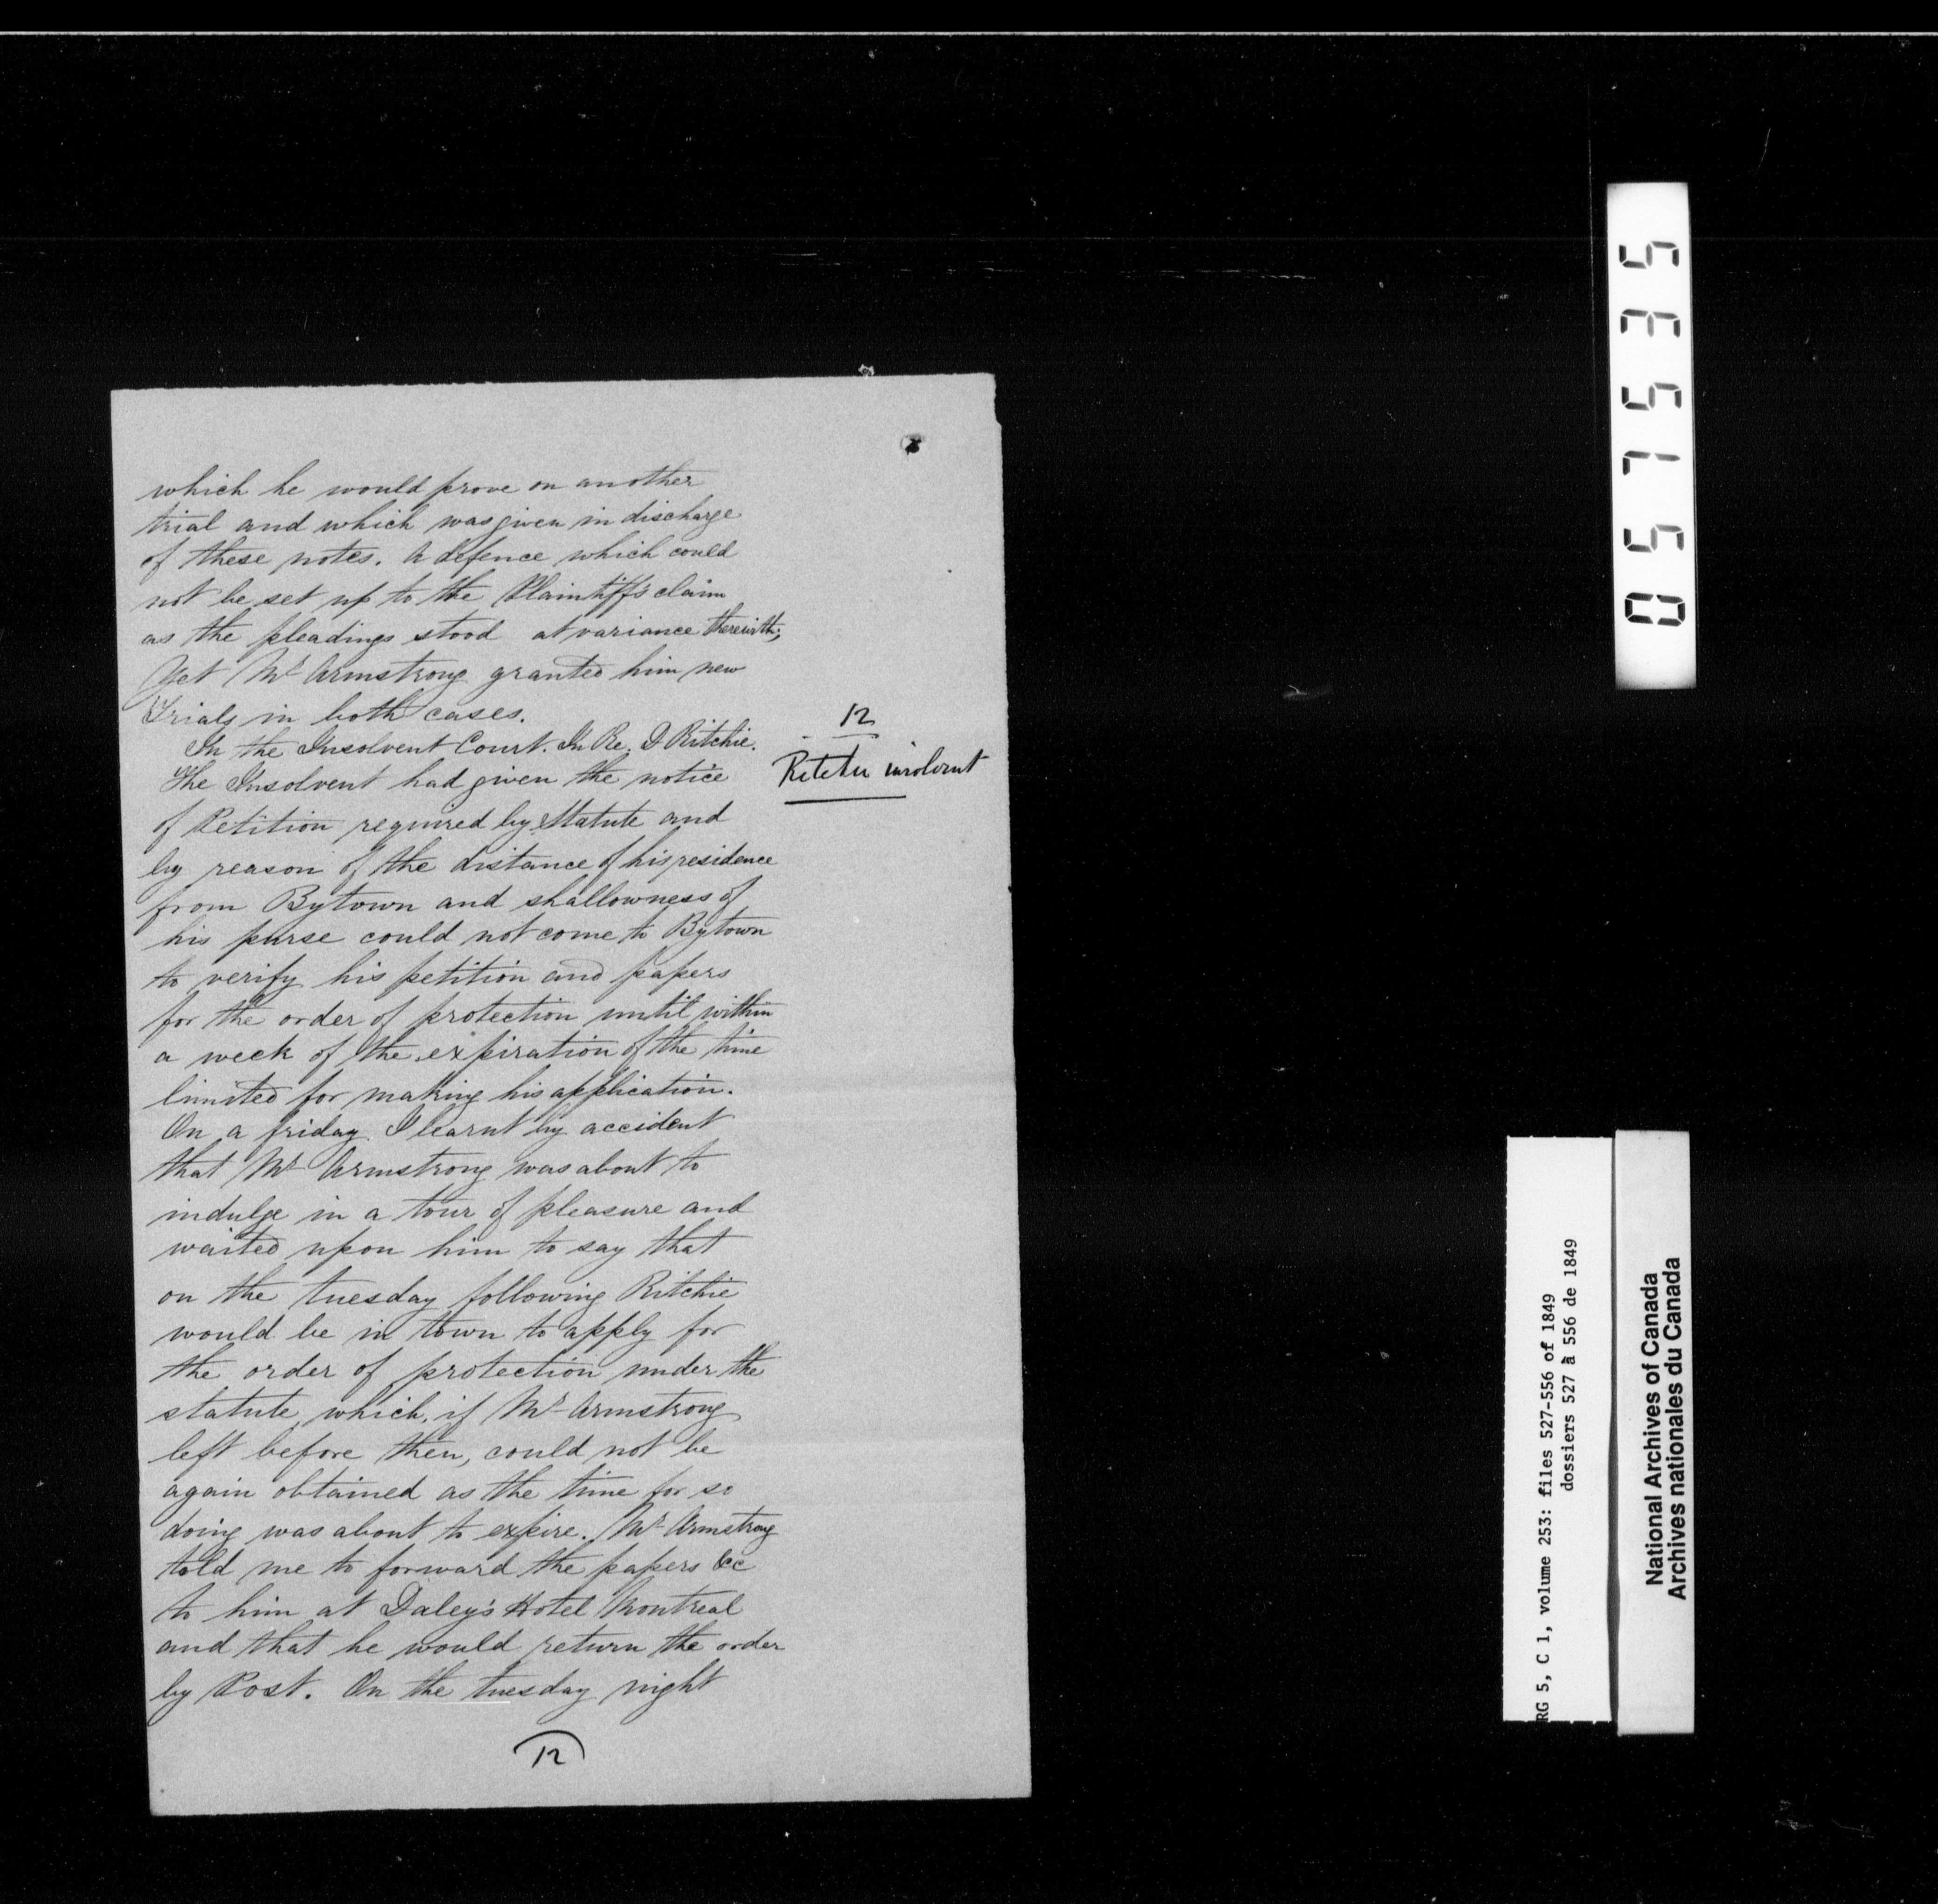 which he would prove on another
trial and which was given in discharge
of these notes. A defence which could
not be set up to the Plaintiff's claim
as the pleadings stood at variance therewith;
Yet Mr Armstrong granted him new
Trials in both cases.
In the Insolvent Court. In Re. D Ritchie.
The Insolvent had given the notice
of Petition required by Statute and
by reason of the distance of his residence
from Bytown and shallowness of
his purse could not come to Bytown
to verify his petition and papers
for the order of protection until within
a week of the expiration of the time
limited for making his application.
On a friday I learnt by accident
that Mr Armstrong was about to
indulge in a tour of pleasure and
waited upon him to say that
on the tuesday following Ritchie
would be in town to apply for
the order of protection under the
statute, which, if Mr Armstrong
left before then, could not be
again obtained as the time for so
doing was about to expire. Mr Armstrong
told me to forward the papers &c
to him at Daley's Hotel Montreal
and that he would return the order
by Post. On the tuesday night
12
12
Ritchie insolvent
057535
RG 5, C 1, volume 253: files 527-556 of 1849
dossiers 527 à 556 de 1849
National Archives of Canada
Archives nationales du Canada